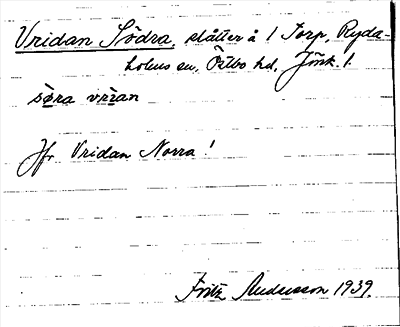 Vridan Södra, slåtter å 1 Torp, Ryda-
holms sn, Östbo hd, Jönk. l.
sö̀ra vrìan
Jfr Vridan Norra!
Fritz Andersson 1939.